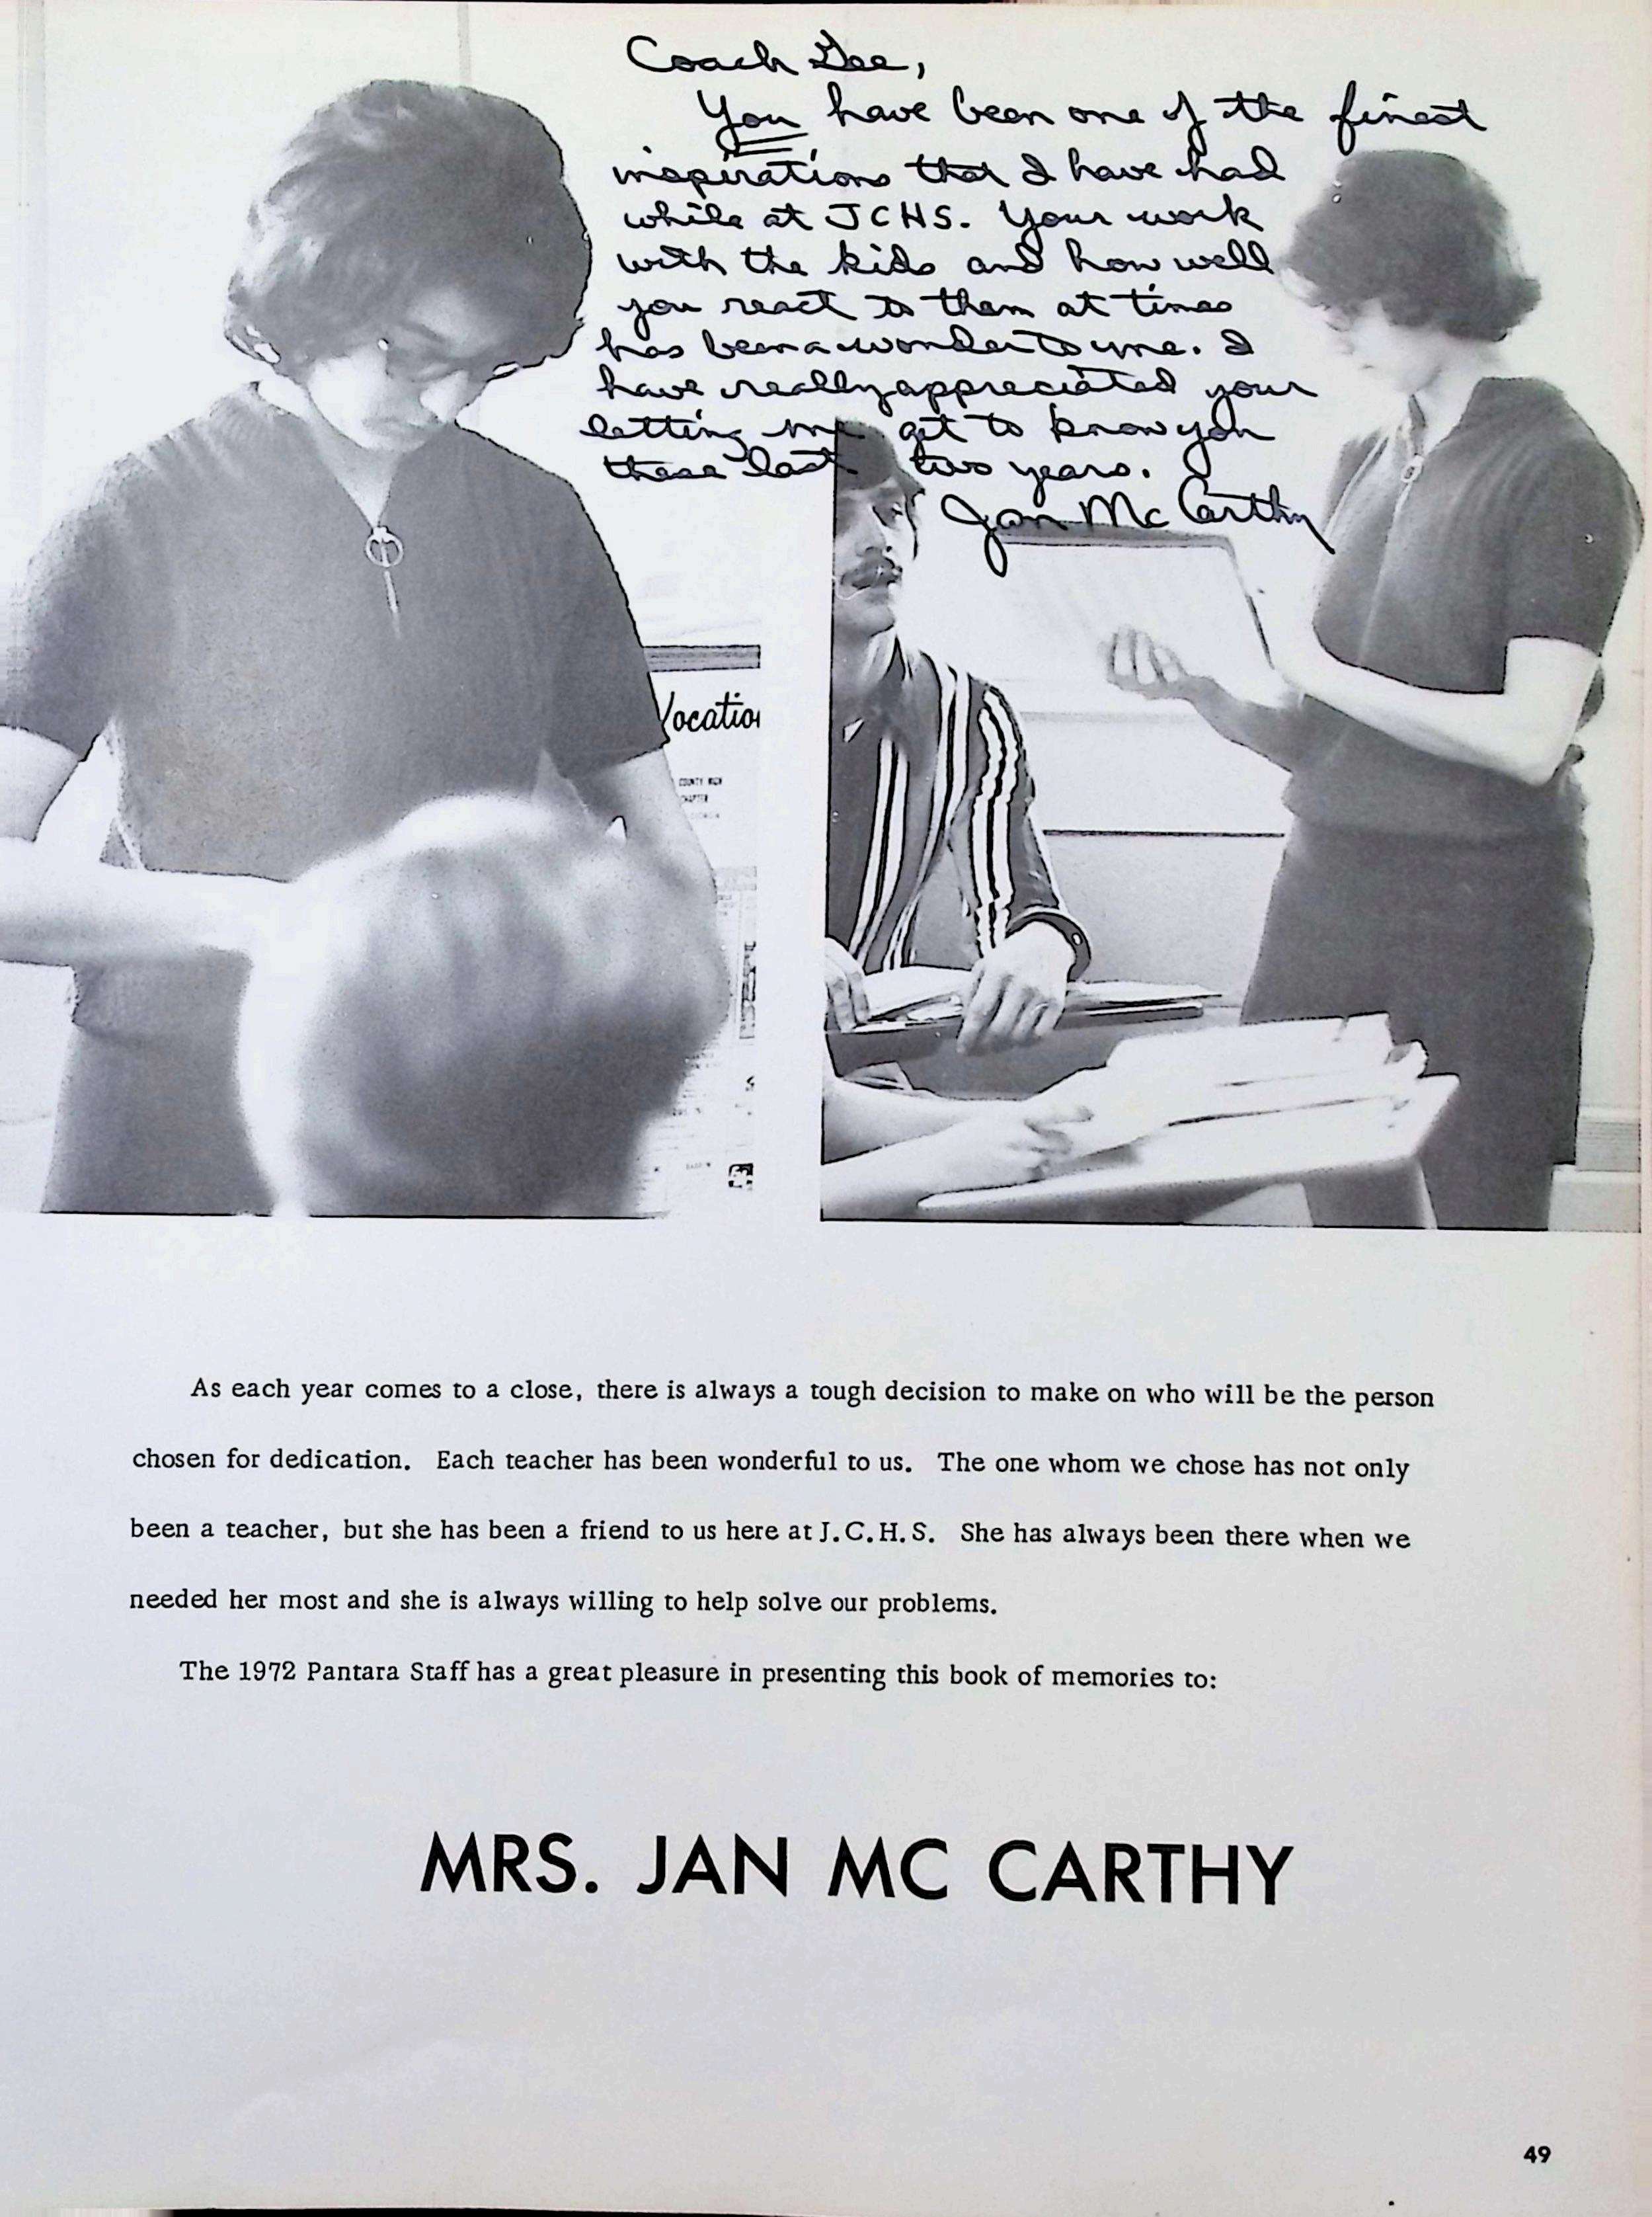 Coach Gee,
You have been one of the finest
inspirations that I have had
while at JCHS. Your work
with the kids and how well
you react to them at times
has been a wonder to me. I
have really appreciated your
letting me get to know you
these last two years.
Jan McCarthy
Vocatio
COUNTY HIGH
CHAPTER
As each year comes to a close, there is always a tough decision to make on who will be the person
chosen for dedication. Each teacher has been wonderful to us. The one whom we chose has not only
been a teacher, but she has been a friend to us here at J.C.H.S. She has always been there when we
needed her most and she is always willing to help solve our problems.
The 1972 Pantara Staff has a great pleasure in presenting this book of memories to:
MRS. JAN MC CARTHY
49